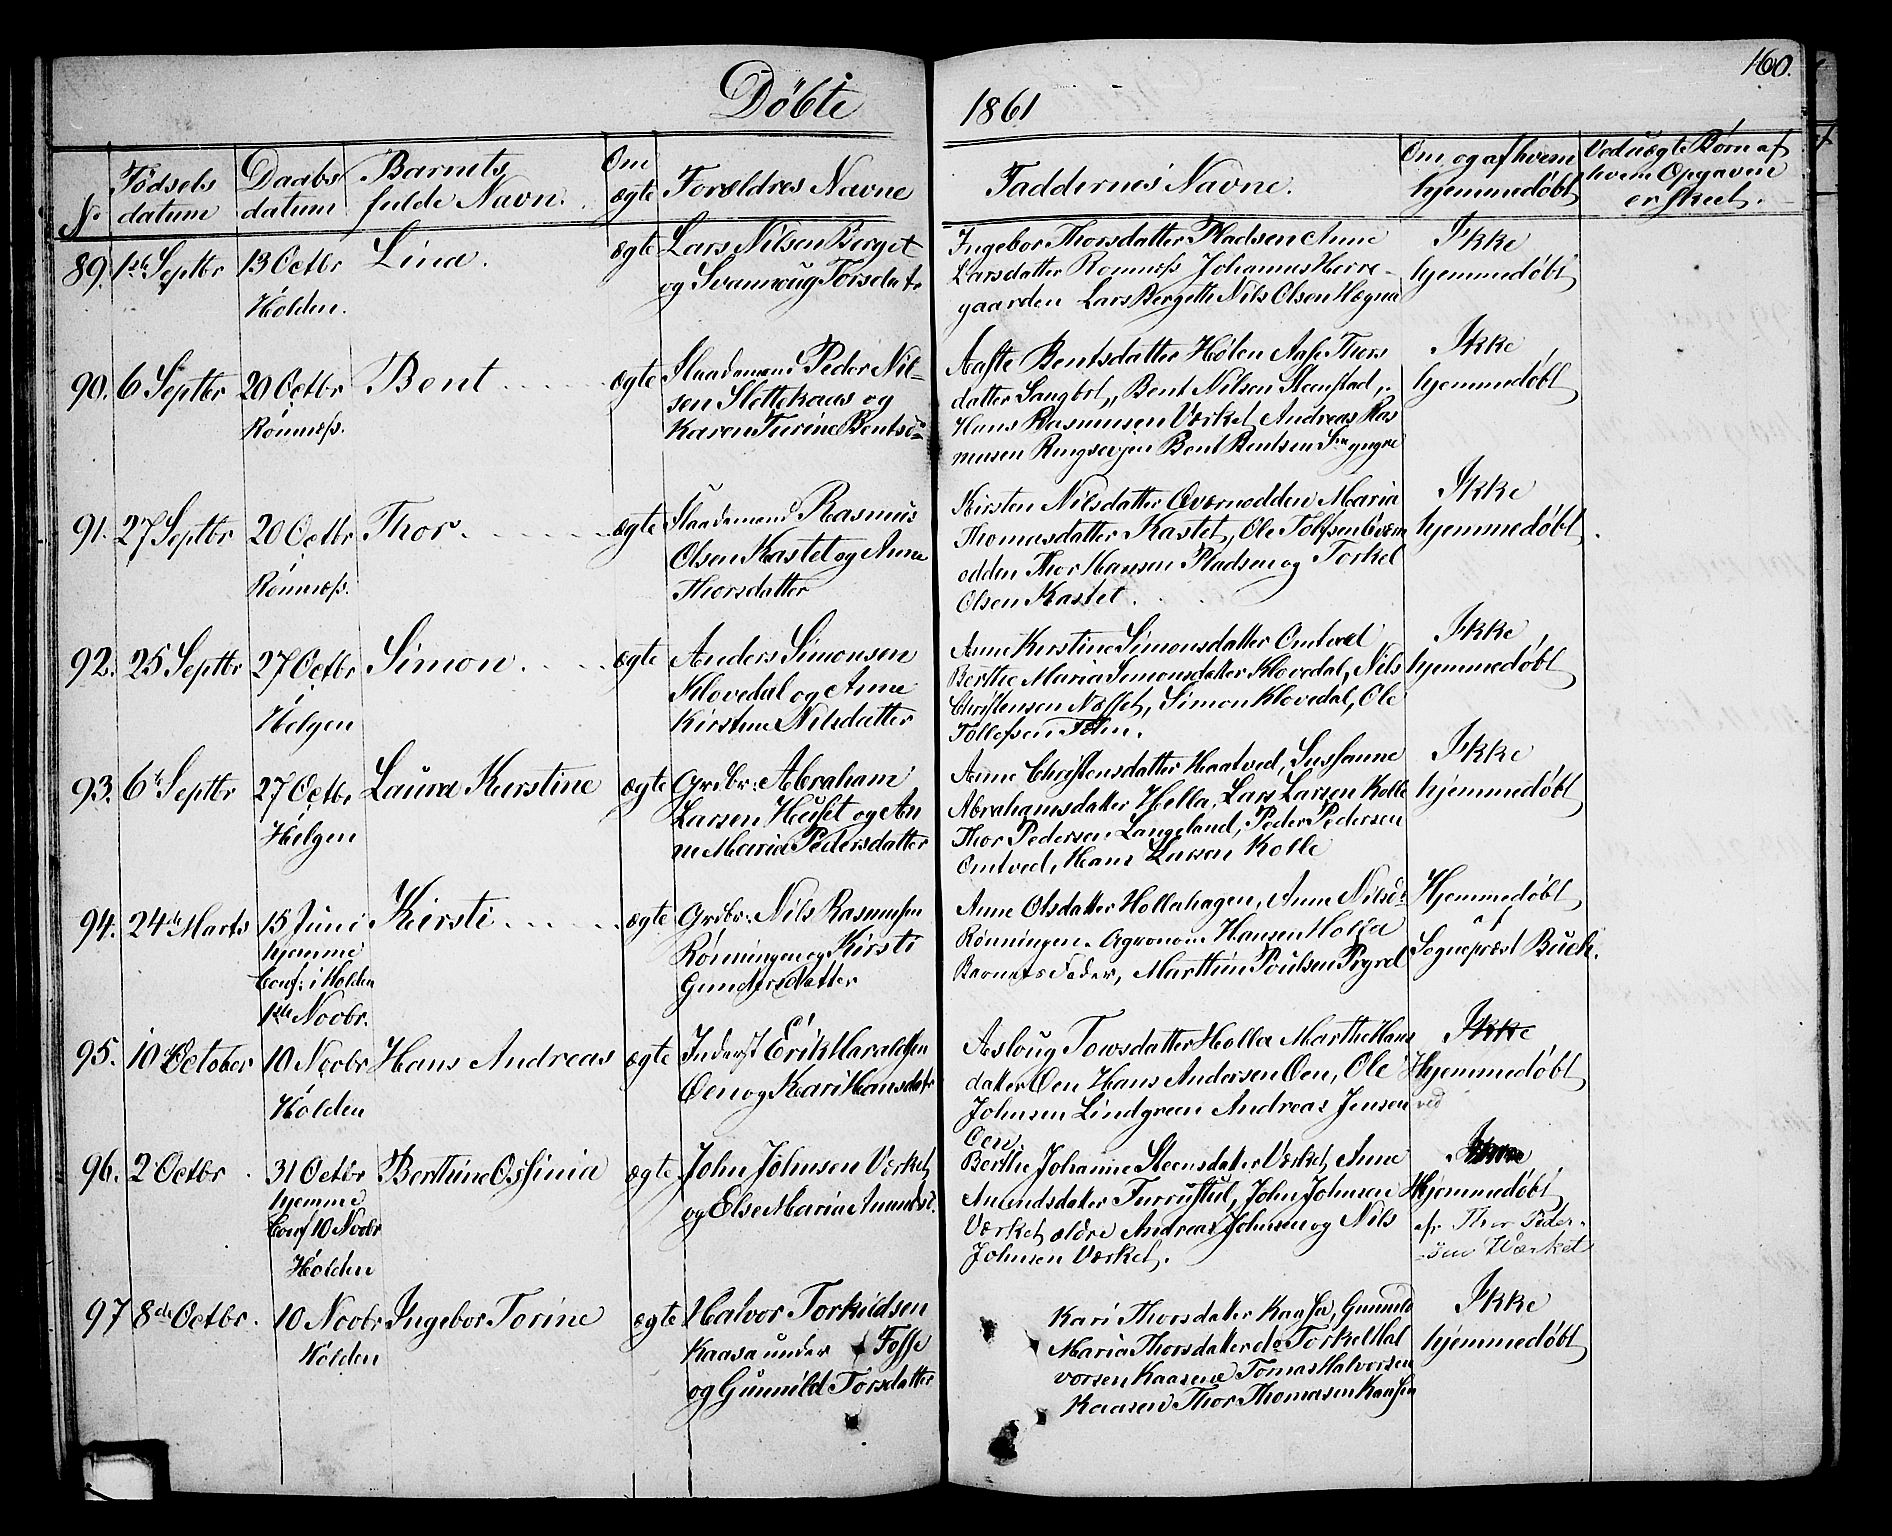 160.
Döbte 1861
No
Födsels datum
Daabs datum
Barnets fulde Navn.
Om ægte
Forældres Navne
Faddernes Navne.
Om og af hvem hjemmedøbt
Ved uægte Børn af hvem Opgaven er skeet.
89. 1ste Septbr
13 Octbr
Holden.
Lina.
ægte
Lars Nilsen Berget
og Svanaug Torsdatr
Ingebor Thorsdatter Pladsen Anne
Larsdatter Romnæss Johannes Herre-
gaarden Lars Bergette Nils Olsen Hægna
Ikke
hjemmedøbt
90. 6 Septbr
20 Octbr
Romnæss.
Bent
ægte
Staadsmand Peder Nil-
sen Slettekaas og
Karen Turine Bentsd
Aaste Bentsdatter Holen Aase Thors
datter Sangbøl, Bent Nilsen Steenstad,
Hans Rasmussen Værket Andreas Ras
musen Ringsevjen Bent Bentsen Sn yngre
Ikke
hjemmedøbt
91. 27 Septbr
20 Octbr
Romnæss.
Thor.
ægte
Staadsmand Rasmus
Olsen Kastet og Anne
Thorsdatter
Kirsten Nilsdatter Overnodden Maria
Thomasdatter Kastet, Ole Tolfsen Overn
odden Thor Hansen Pladsen og Torkel
Olsen Kastet.
Ikke
hjemmedøbt.
92. 25 Septbr
27 Octbr
Helgen
Simon.
ægte
Anders Simonsen
Klovedal og Anne
Kirstine Nilsdatter
Anne Kirstine Simonsdatter Omtved
Berthe Maria Simonsdatter Klovedal, Nils
Christensen Næsset, Simon Klovedal, Ole
Tollefsen Tohn.
Ikke
hjemmedøbt
93. 6te Septbr
27 Octbr
Helgen
Laura Kirstine
ægte
Grdbr: Abraham
Larsen Huset og An
ne Maria Pedersdatter
Anne Christensdatter Haatved, Sussanne
Abrahamsdatter Hella, Lars Larsen Kolle
Thor Pedersen Langeland, Peder Pedersen
Omtved, Hans Larsen Kolle
Ikke
hjemmedøbt
94. 24de Marts
15 Juni
hjemme
Conf: i Holden
1ste Novbr.
Kirsti
ægte
Grdbr: Nils Rasmussen
Rønningen og Kirsti
Gundersdatter
Anne Olsdatter Hollahagen, Anne Nilsdr
Rönningen. Agronom Hansen Holla
Barnets Fader, Marthin Poulsen Prgrd
Hjemmedøbt
af
Sognepræst Buch.
95. 10de October
10 Novbr
Holden
Hans Andreas
ægte
Inderst Erik Haraldsen
Oen og Kari Hansdatr
Asloug Towsdatter Holla Marthe Hans
datter Oen Hans Andersen Oen, Ole
Johnsen Lindgreen Andreas Jensen
Oen.
Ikke
Hjemmedøbt
ved
96. 2 Octbr.
31 Octbr
hjemme
Conf 10 Novbr
Holden
Berthine Ossinia
ægte
John Johnsen Værket
og Else Maria Amundsd.
Berthe Johanne Steensdatter Værket, Anne
Amundsdatter Furrustul, John Johnsen
Værket ældre Andreas Johnsen og Nils
Johnsen Værket.
Hjemmedøbt
af Thor Peder-
-sen Værket
97 8de Octbr.
10 Novbr
Holden
Ingebor Torine
ægte
Halvor Torkildsen
Kaasa under Fosse
og Gunnild Torsdatter
Kari Thorsdatter Kaasa, Gunnild
Maria Thorsdatter do Torkel Hal
vorsen Kaasene Tomas Halvorsen
Kaasen Thor Thomasen Kaasen
Ikke
hjemmedøbt